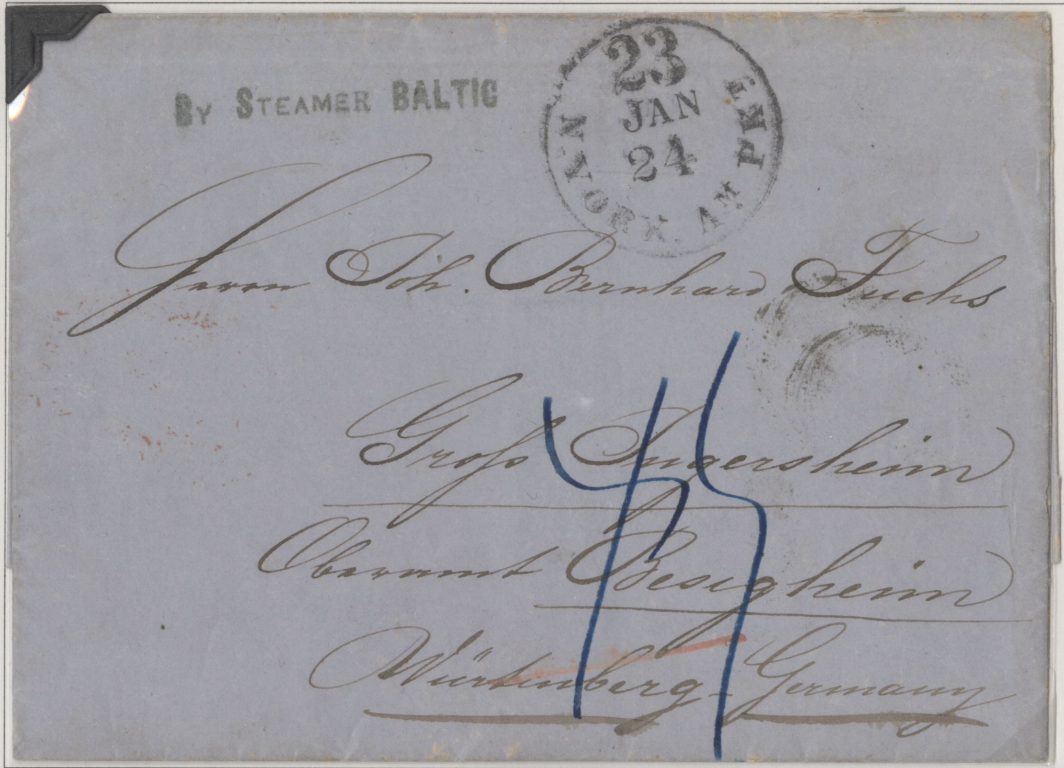 By Steamer BALTIC
N. YORK. AM PKT
23
JAN
24
Herrn Joh. Bernhard Fuchs
Groß Ingersheim
Oberamt Besigheim
Würtenberg - Germany
45